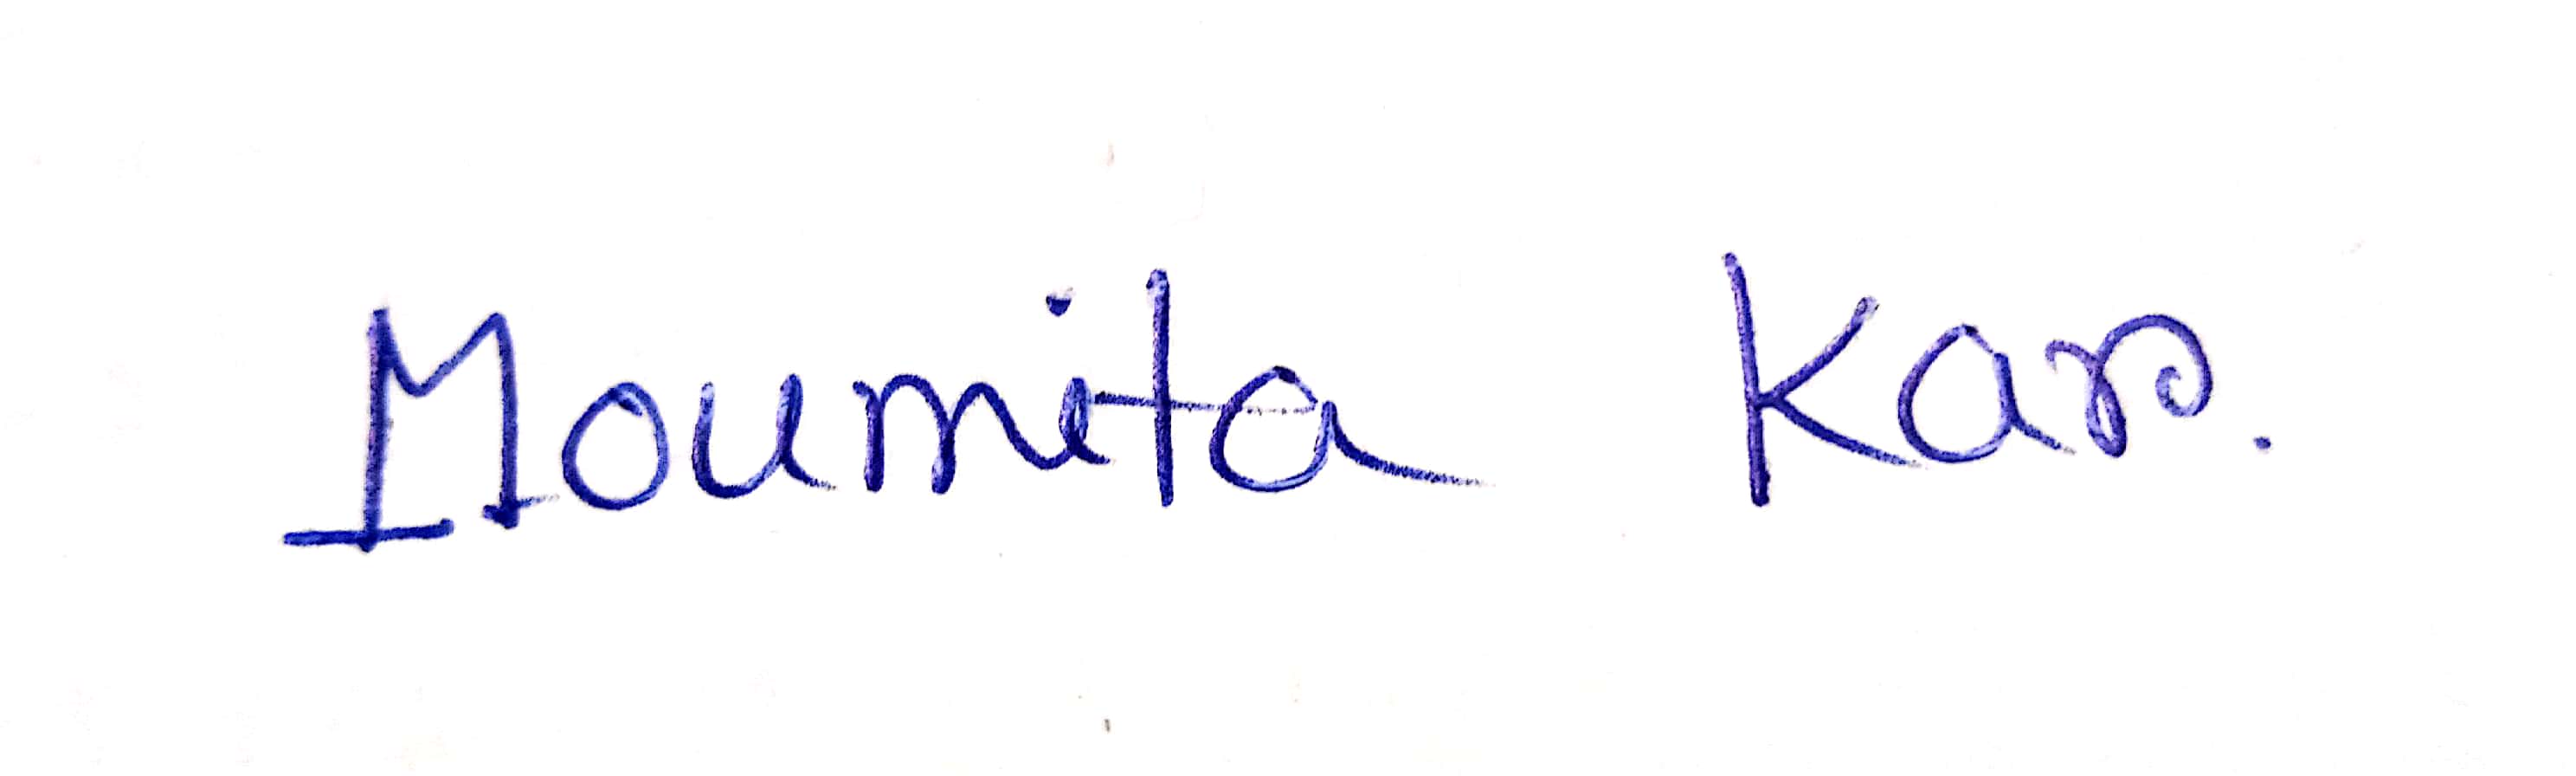 Moumita Kar.